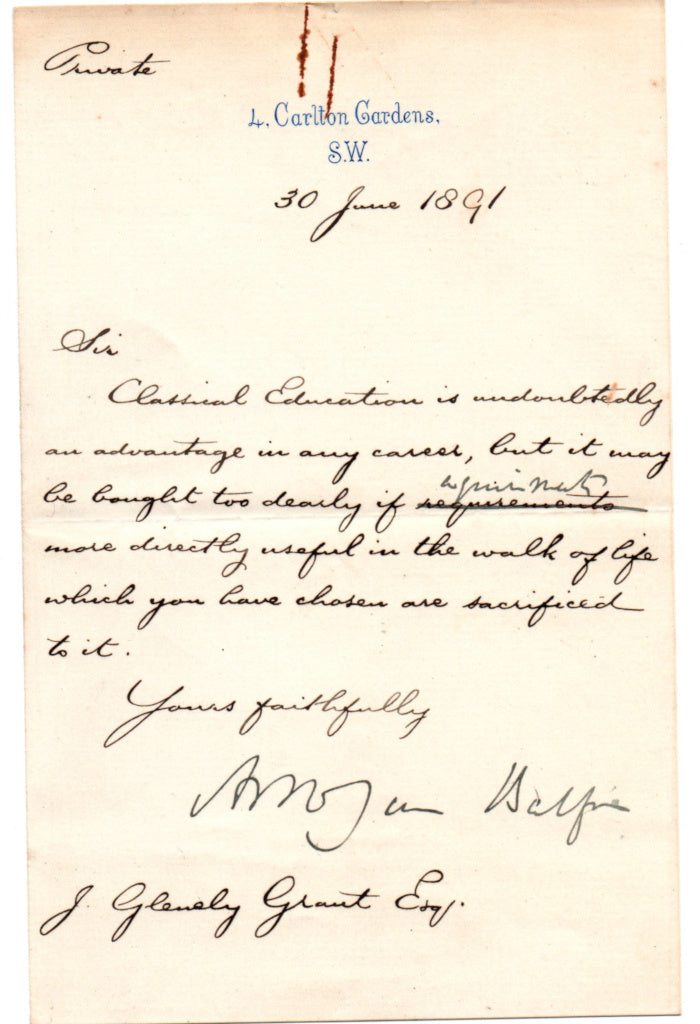 Private
4, Carlton Gardens,
S.W.
30 June 1891
Sir
Classical Education is undoubtedly
an advantage in any career, but it may
acquirements
be bought too dearly if requirements
more directly useful in the walk of life
which you have chosen are sacrificed
to it.
Yours faithfully
Arthur James Balfour
J. Glenely Grant Esq.